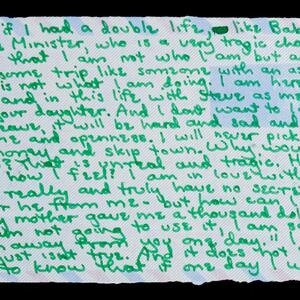 if I had a double life, like Bab
Minister, who is a very tragic cha
that I am not who I am but
some trip like someone with an a
is not what I am doing. I am her
and in this life with Steve as
our daughter. And I don't want to
leave, it will be hard and sad and
me and openness. I will never pick
normal and skip town. Why woul
That is unreal and tragic. H
now feel? I am in love with
really and truly have no secre
he from me- but how can
mother gave me a thousand do
I'm not going to use it, I am s
away from you one day."
just isn't true. And it does not
to know that if one day I w